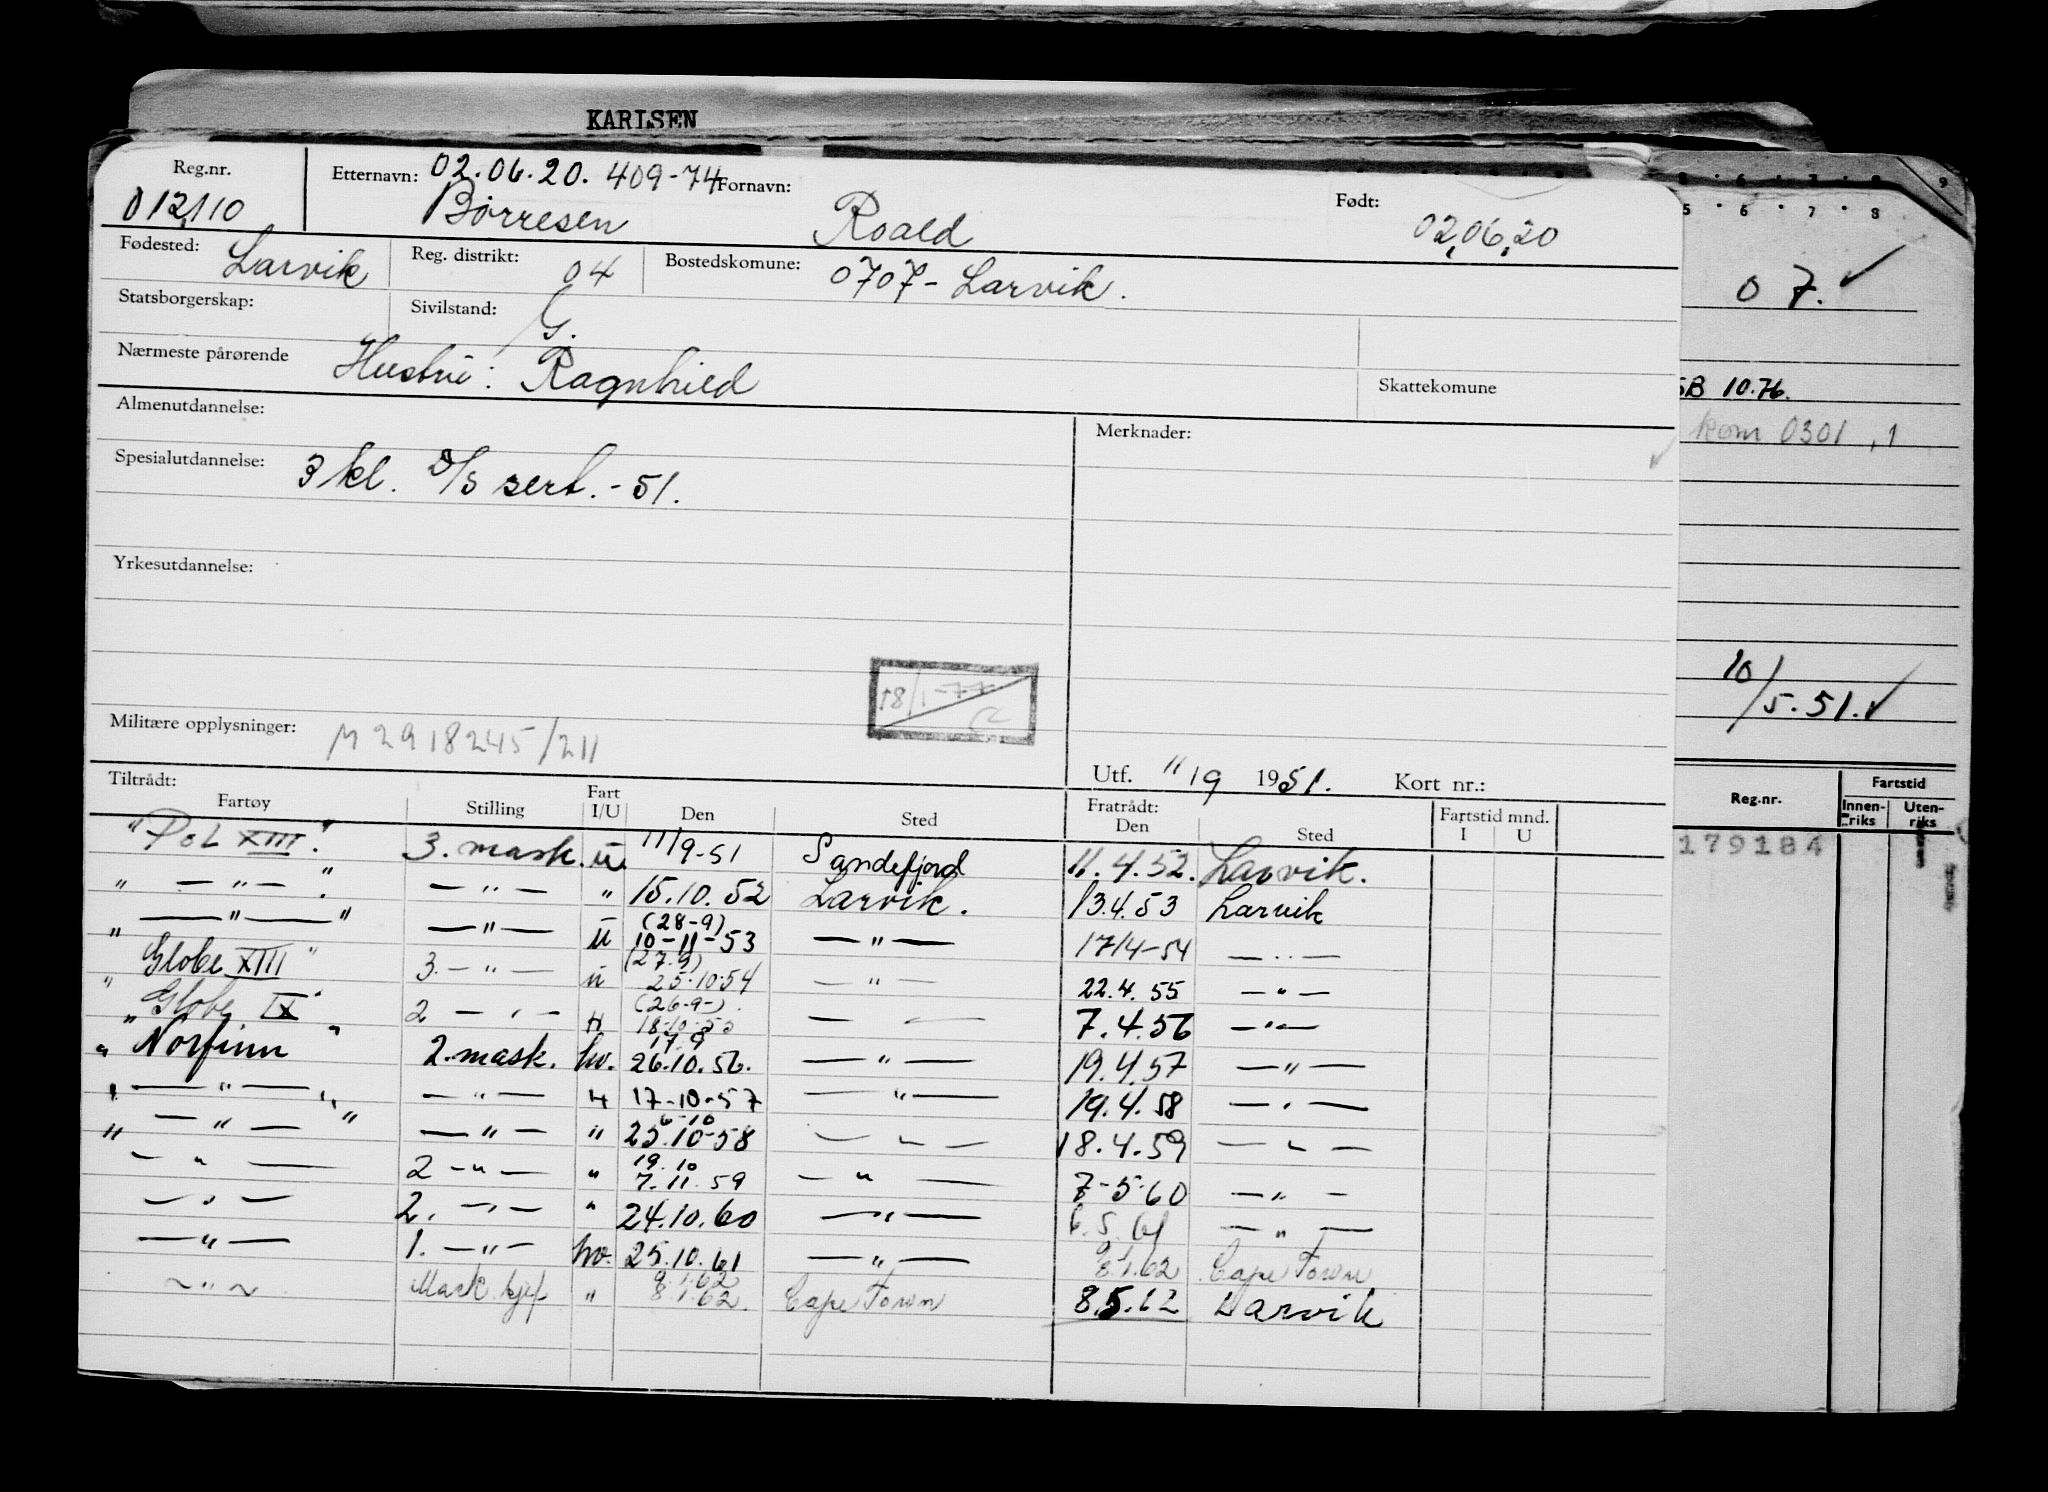 KARLSEN
Reg.nr. Etternavn: 02.06.20. 409-74 Fornavn: Født:
012110 Børresen Roald 02,06,20
Fødested: Larvik Reg. distrikt: 04 Bostedskomune: 0707- Larvik.
Statsborgerskap: Sivilstand: G.
Nærmeste pårørende Hustru: Ragnhild Skattekomune
Almenutdannelse: Merknader:
Spesialutdannelse: 3 kl. D/S sert. - 51.
Yrkesutdannelse:
18/1-77
Militære opplysninger: M 2918245/211
Utf. 11/9 1951. Kort nr.:
Tiltrådt: Fratrådt: Fartstid mnd.
Fartøy Stilling Fart I/U Den Sted Den Sted I U
"Pol XIII". 3. mask. u. 11/9-51 Sandefjord 11.4.52. Larvik.
" — " — ". — " — " 15.10.52 Larvik. 13.4.53 Larvik
" — " — " — " — u (28-9) 10-11-53 — " — 17/4-54 — " —
" Globe XIII " 3. — " — u (27.9) 25.10.54 — " — 22.4.55 — " —
" Globe IX " 2 — " — H (26-9-) 18.10.55 — — 7.4.56 — " —
" Norfinn " 2. mask. hv. 17.9 26.10.56. — " — 19.4.57 — " —
" — " — " — " — H 17-10-57 — " — 19.4.58 — " —
" — " — " — " — " 6-10 25.10-58 — " — 18.4.59 — " —
— " — 2 — " — " 19.10 7.11.59 — " — 7-5-60 — " —
— " — 2. — " — " 24.10.60 — " — 6.5.61 — " —
— " — 1. — " — hv. 25.10.61 — " — 8.1.62 Cape Town
— " — Mask. kjef " 8.1.62 8.1.62. Cape Town 8.5.62 Larvik
5 6 7 8 9
0 7. ✓
SB 10.76.
kom 0301, 1
10/5.51. ✓
Reg.nr. Fartstid
Innenriks Utenriks
179184